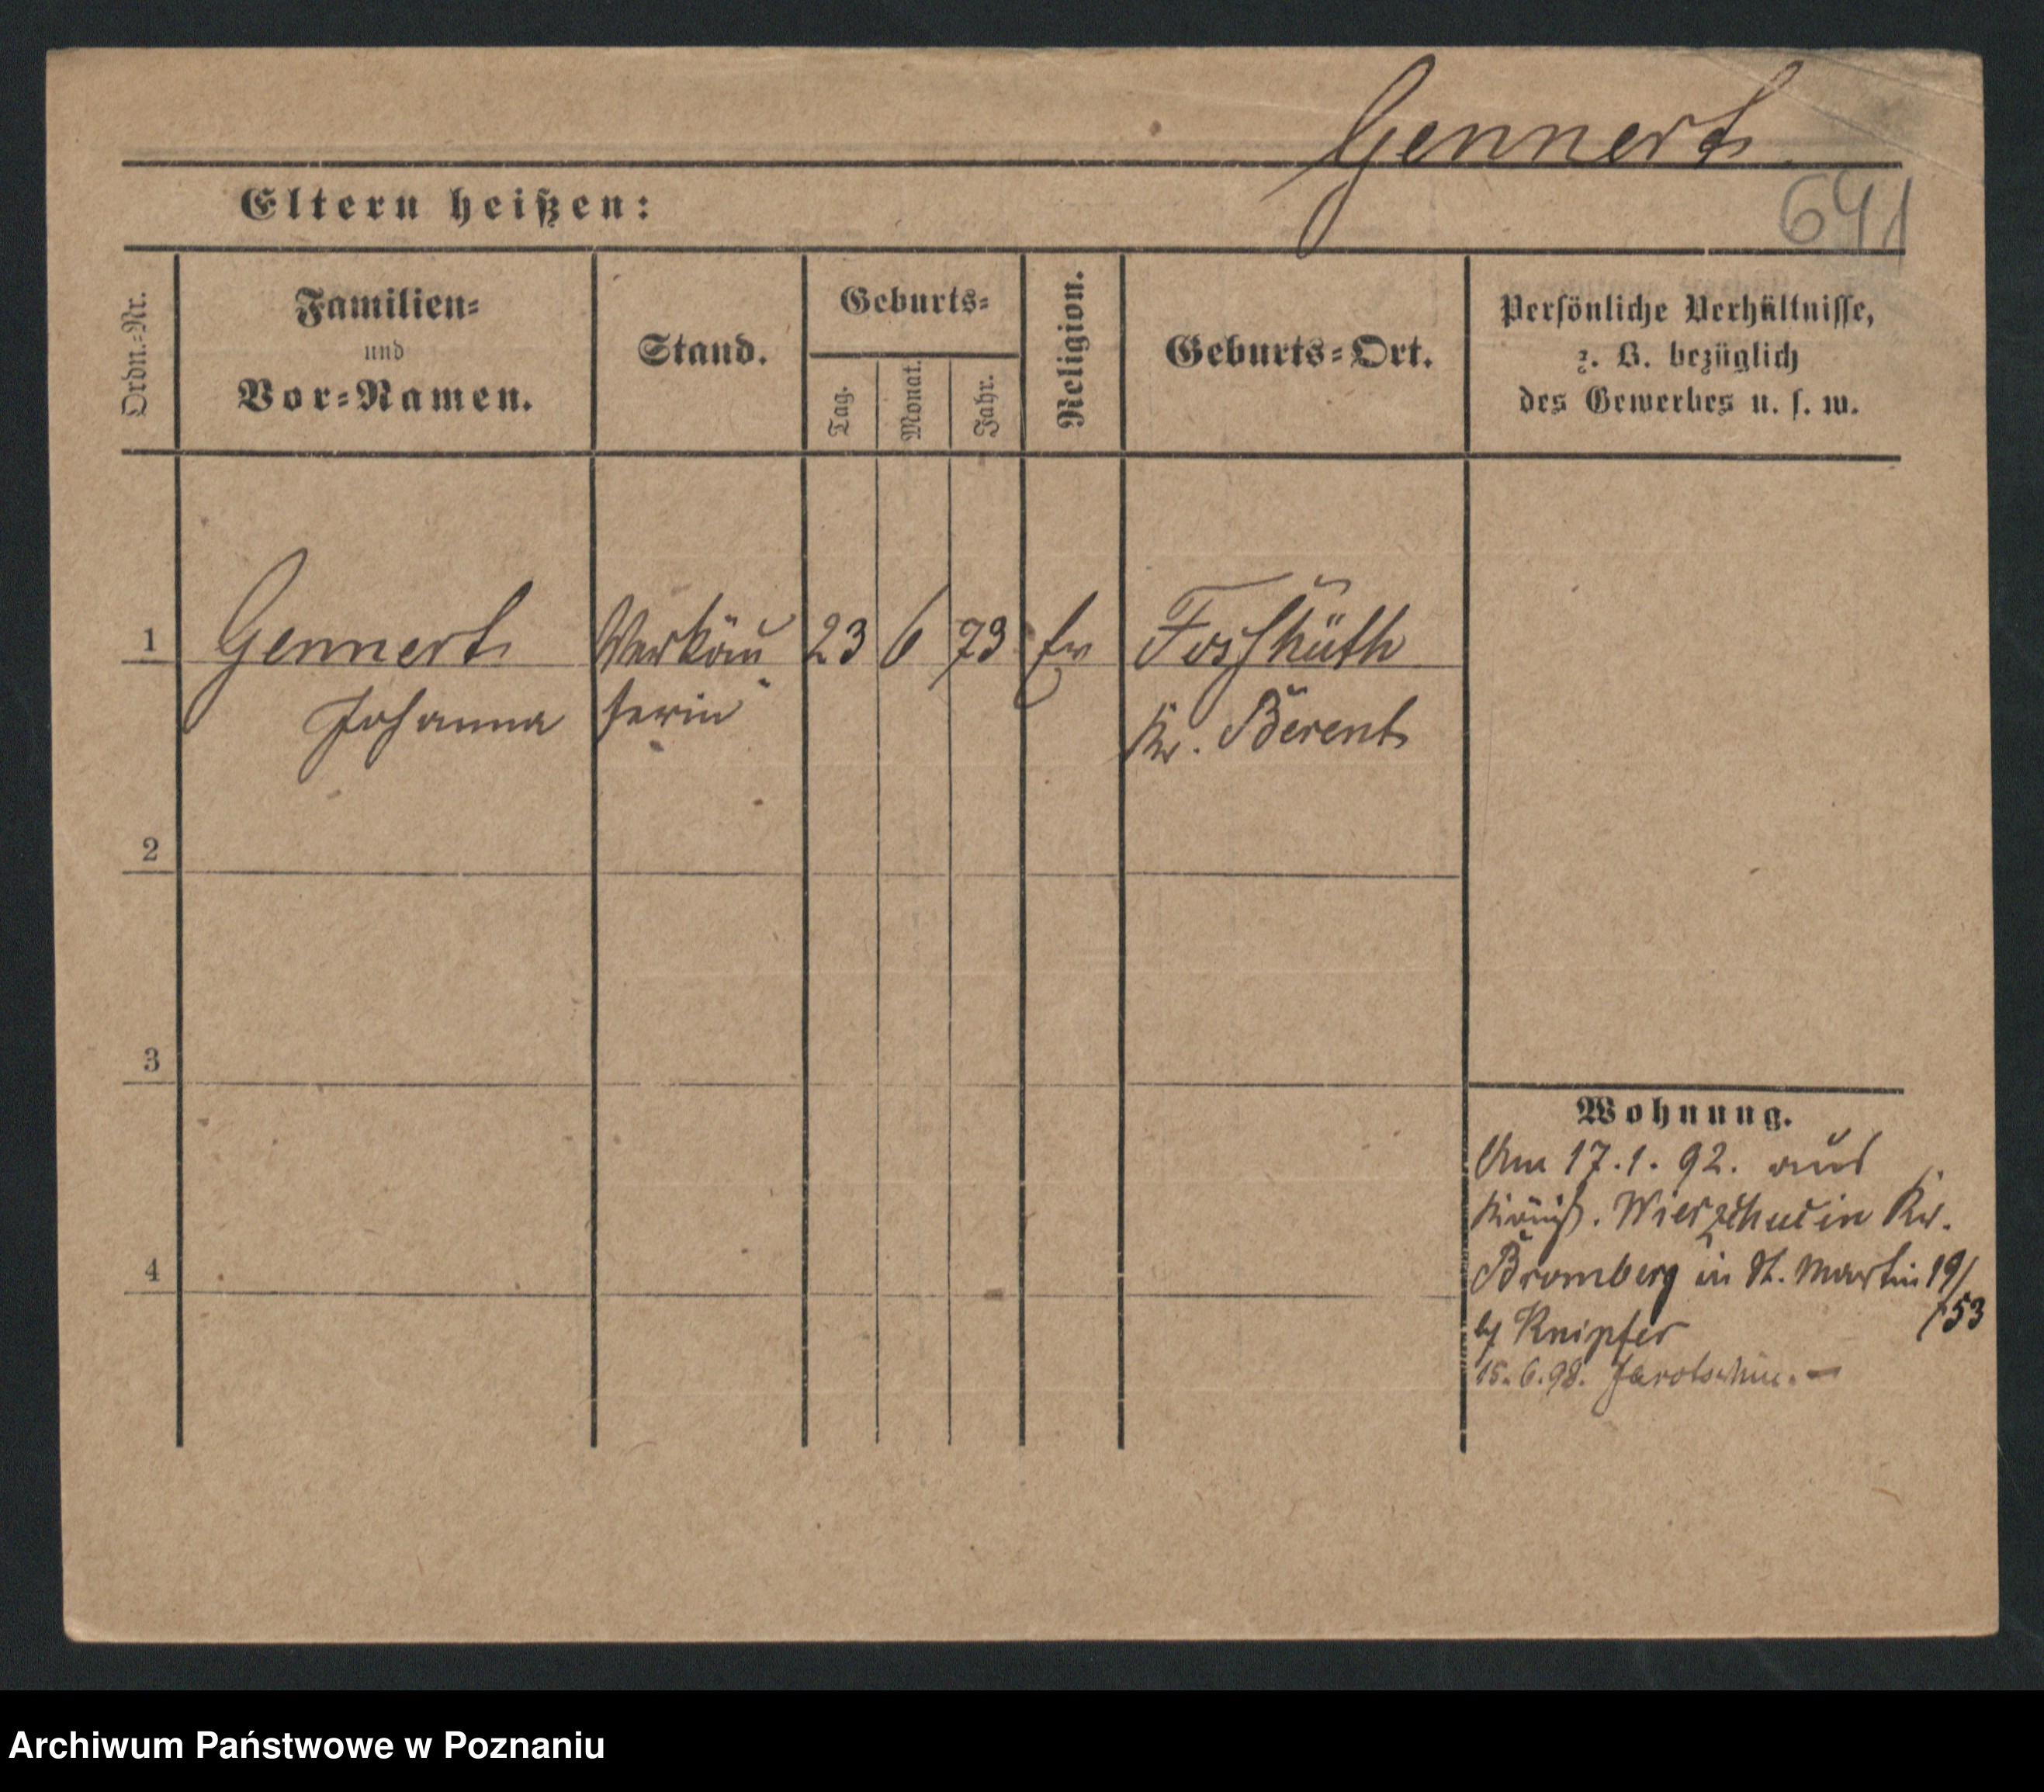 Gennert
641
Eltern heißen:
Ordn.-Nr.
Familien-
und
Vor-Namen.
Stand.
Geburts-
Tag.
Monat.
Jahr.
Religion.
Geburts-Ort.
Persönliche Verhältnisse,
z. B. bezüglich
des Gewerbes u. s. w.
1 Gennert Verkäu 23 6 73 Ev
Johanna ferin Kr. Berent
2
3
4
Wohnung.
Am 17.1.92. aus
Königl. Wierzchucin Kr.
Bromberg in St. Martin 19/
53
Knipfer
15.6.98. Jarotschin. -
Archiwum Państwowe w Poznaniu